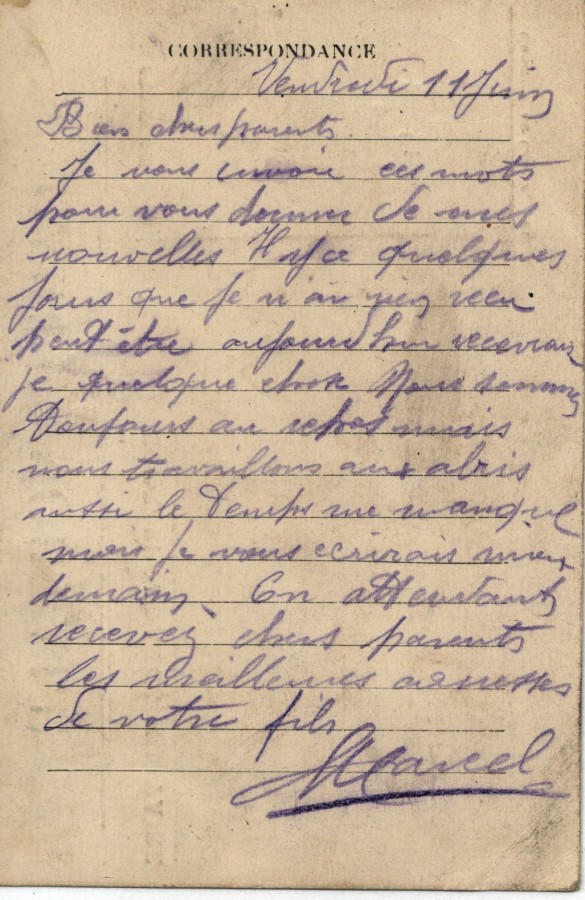 CORRESPONDANCE
Vendredi 11 Juin
Biens chers parents
Je vous envoie ces mots
pour vous donner de mes
nouvelles Il y a quelques
jours que je n'ai rien recu
peut être aujourd'hui recevrais
je quelque chose Nous sommes
Toujours au repos mais
nous travaillons aux abris
aussi le temps me manque
mais je vous ecrirais mieux
demain. En attendant
recevez chers parents
les meilleures caresses
de votre fils
Marcel